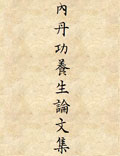 內丹功養生論文集